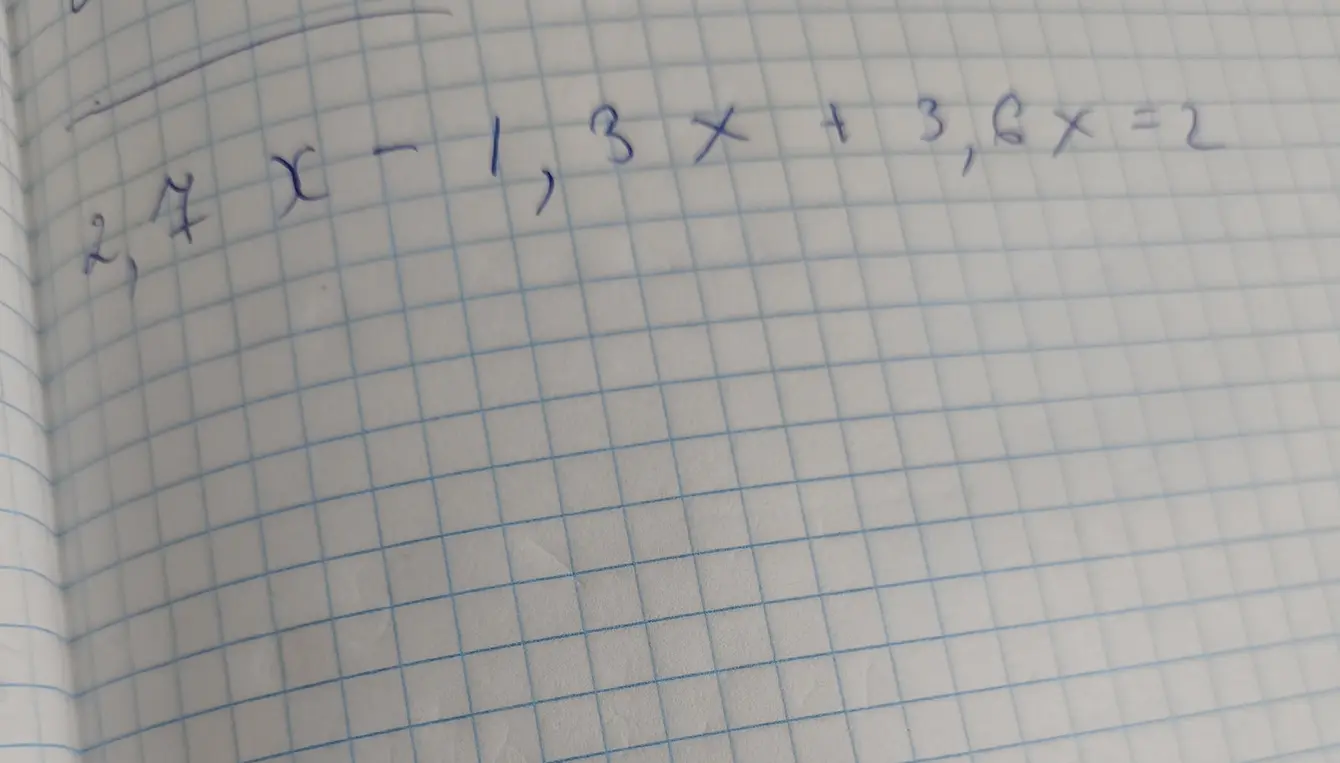 2,7 x - 1,3 x + 3,6 x = 2